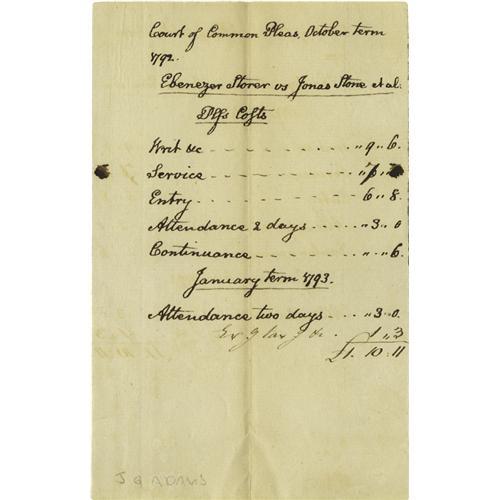 Court of Common Pleas, October term
1792.
Ebenezer Storer vs Jonas Stone et al:
Plfs Costs
Writ &c - - - - - - - - „ 9 „ 6.
Service - - - - - - - - „
Entry - - - - - - - - 6 „ 8.
Attendance 2 days - - - - „ 3 „ 0
Continuance - - - - - - „ „ 6.
January term 1793.
Attendance two days - - - „ 3 „ 0.
1 „ 3
£1. 10 : 11
J Q ADAMS